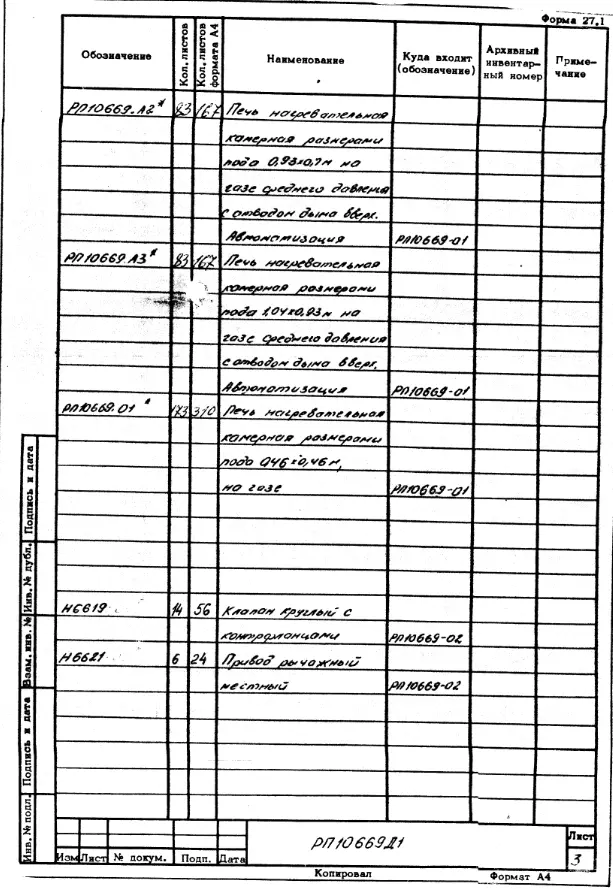 Форма 27.1
Обозначение Кол. листов Кол. листов формата А4 Наименование Куда входит (обозначение) Архивный инвентар-ный номер Приме-чание
РП10669.А2* 83 167 Печь нагревательная
камерная размерами
пода 0,93х0,7м на
газе среднего давления
с отводом дыма вверх.
Автоматизация РП10669-01
РП10669 А3* 83 167 Печь нагревательная
камерная размерами
пода 1,04х0,93м на
газе среднего давления
с отводом дыма вверх.
Автоматизация РП10669-01
РП10669.01* 173 310 Печь нагревательная
камерная размерами
пода 0,46х0,46м,
на газе РП10669-01
Н6619 14 56 Клапан круглый с
контрфланцами РП10669-02
Н6621 6 24 Привод рычажный
местный РП10669-02
Инв. № подл. Подпись и дата Взам. инв. № Инв. № дубл. Подпись и дата
РП10669Д1
Лист
3
Изм Лист № докум. Подп. Дата
Копировал Формат А4